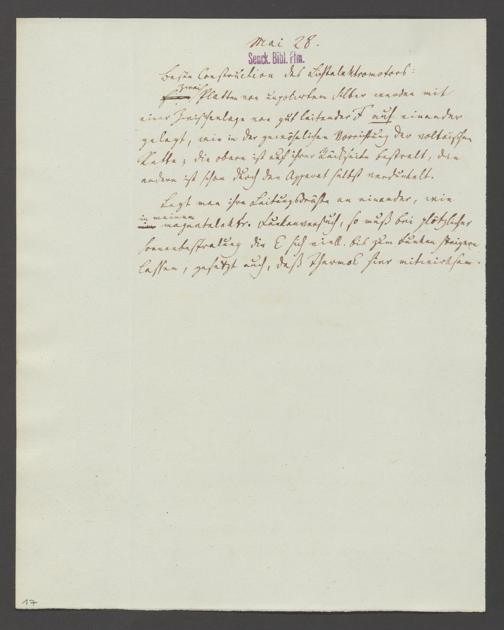 Mai 28.
Senck. Bibl. Ffm.
Beste Construction des Lichtelektromotors:
zwei Platten von ungelöthetem Silber werden mit
einer Zwischenlage von gut leitender F auf einander
gelegt, wie in der gewöhnlichen Vorrichtung der voltaischen
Kette; die obere ist auf ihrer Außenseite bestralt, die
andere ist schon durch den Apparat selbst verdunkelt.
Legt man ihre Leitungsdräthe an einander, wie
in meinem
magnetelektr. Funkenversuch, so muß bei plötzlicher
Sonnenbestralung die E sich viell. bis zum Funken steigern
lassen, gesetzt auch, daß ThermoE hier mitwirksam.
17